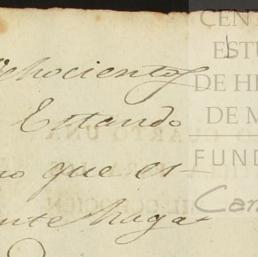 ochocientos
Estando
no que es-
nte haga
CEN
ESTU
DE H
DE M
FUND
Car